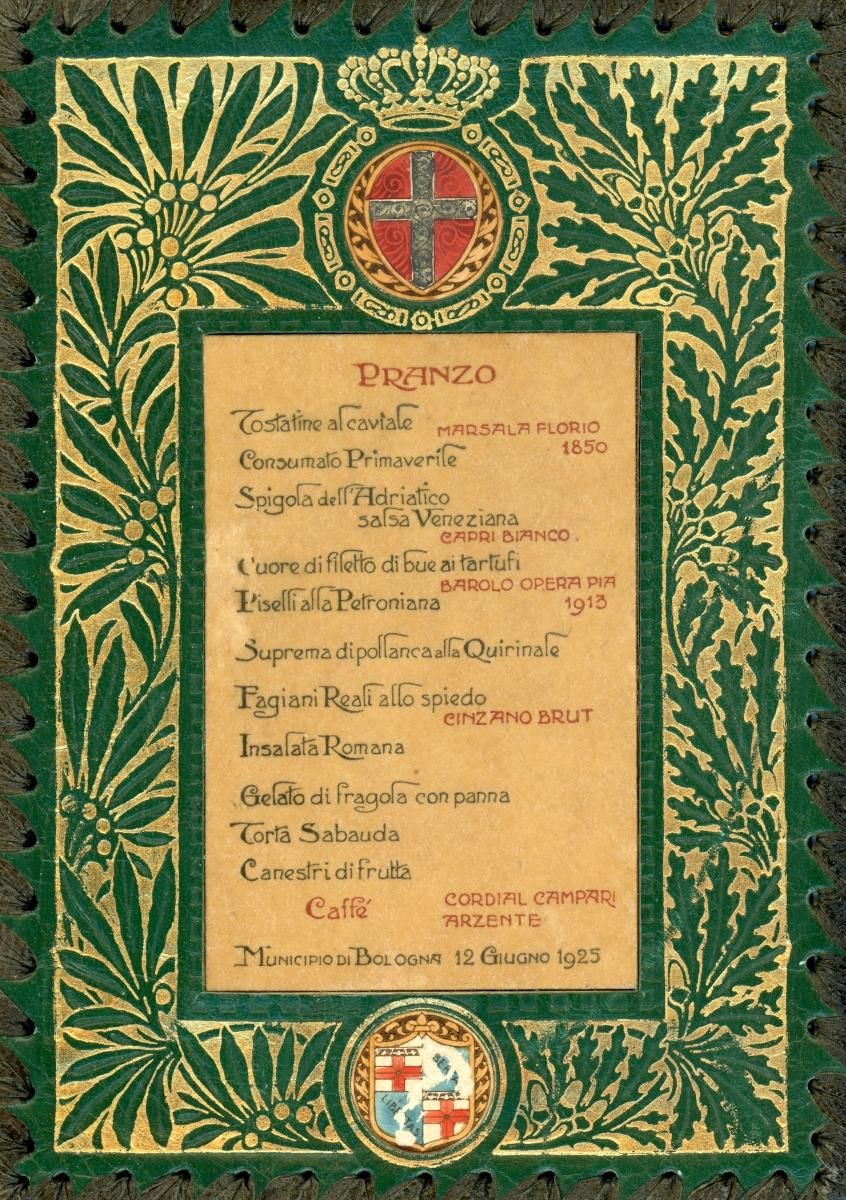 PRANZO
Tostatine al caviale
MARSALA FLORIO
1850
Consumato Primaverile
Spigola dell'Adriatico
salsa Veneziana
CAPRI BIANCO.
Cuore di filetto di bue ai tartufi
BAROLO OPERA PIA
1913
Piselli alla Petroniana
Suprema di pollanca alla Quirinale
Fagiani Reali allo spiedo
CINZANO BRUT
Insalata Romana
Gelato di fragola con panna
Torta Sabauda
Canestri di frutta
Caffé
CORDIAL CAMPARI
ARZENTE
MUNICIPIO DI BOLOGNA 12 GIUGNO 1925
LIBERTAS